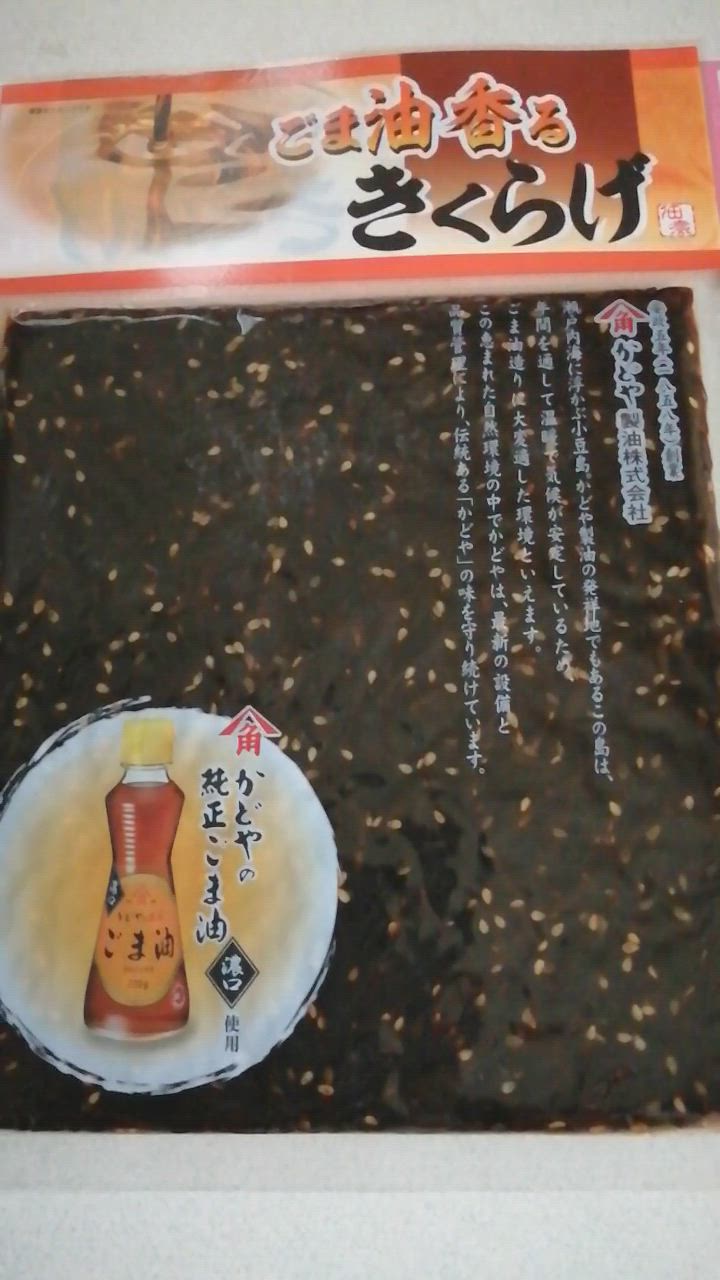 ごま油香る
きくらげ
安政五年(一八五八年)創業
角
かどや製油株式会社
瀬戸内海に浮かぶ小豆島。かどや製油の発祥地でもあるこの島は、
年間を通して温暖で気候が安定しているため、
ごま油造りに大変適した環境といえます。
この恵まれた自然環境の中でかどやは、最新の設備と
品質管理により、伝統ある「かどや」の味を守り続けています。
角
かどやの
純正ごま油
濃口
使用
ごま油